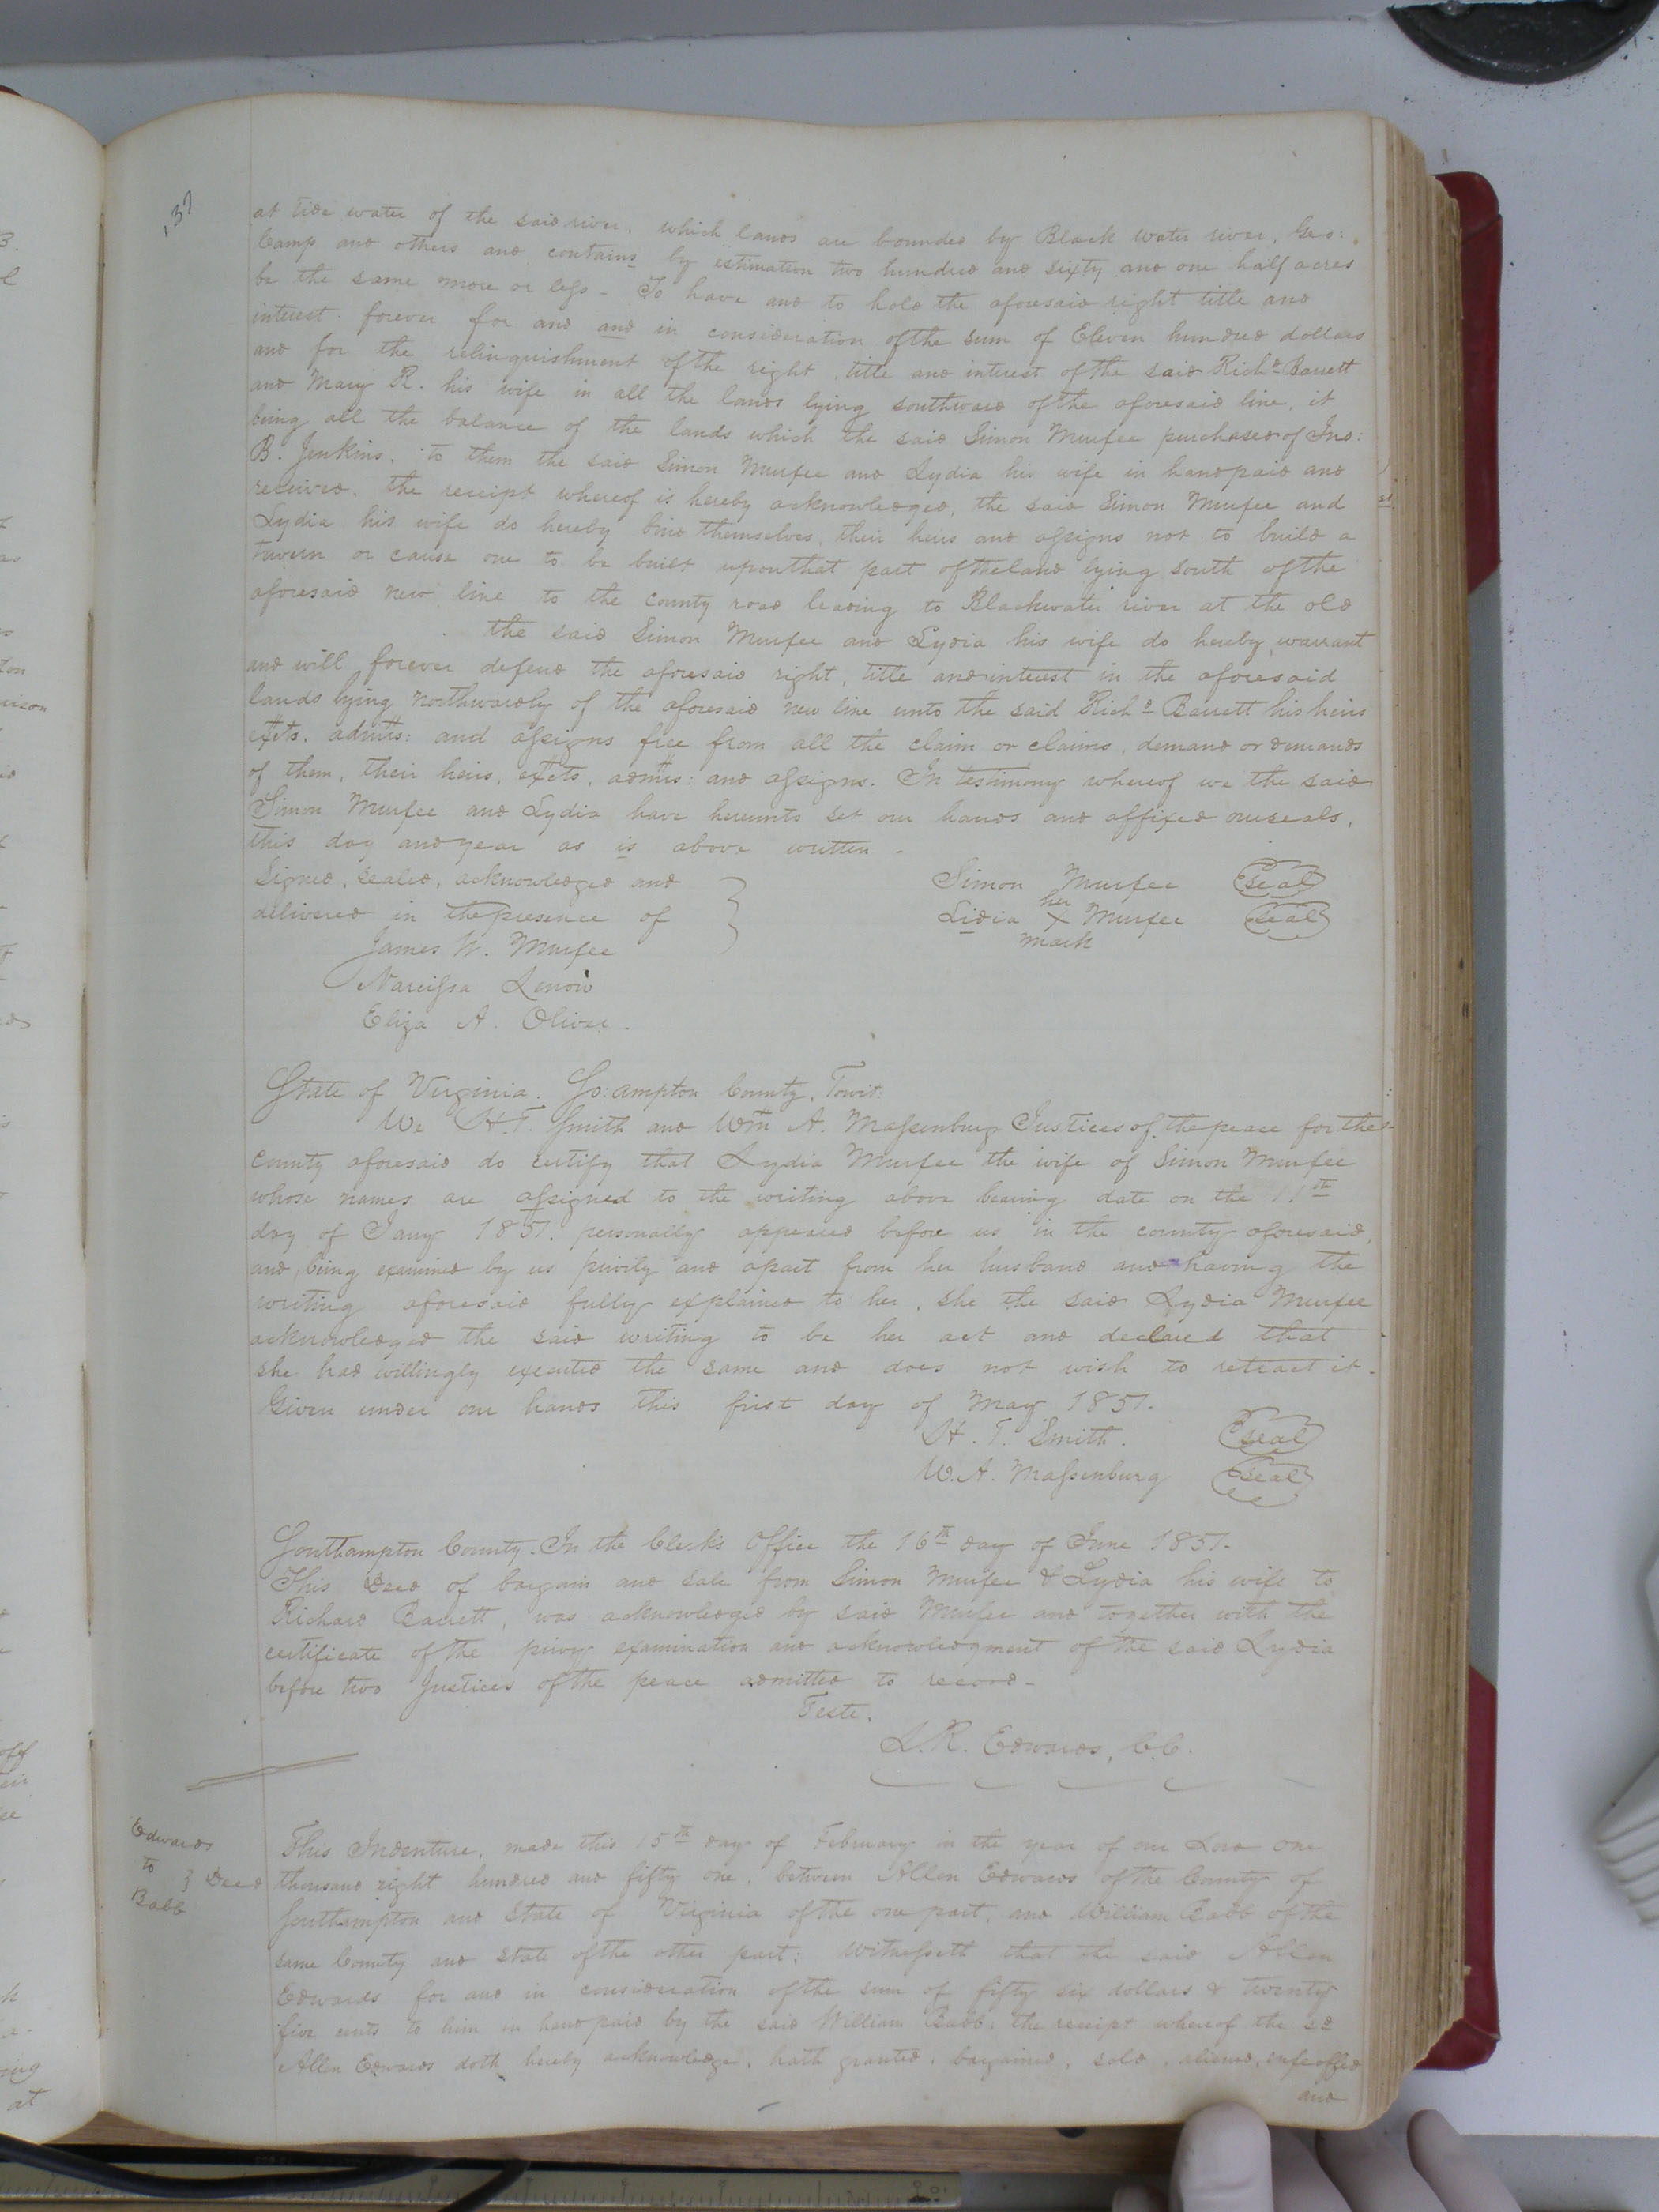 137
at tide water of the said river, which lands are bounded by Black water river, Geo:
Camp and others and contains by estimation two hundred and sixty and one half acres
be the same more or less - To have and to hold the aforesaid right title and
interest forever for and and in consideration of the sum of Eleven hundred dollars
and for the relinquishment of the right, title and interest of the said Richd Barrett
and Mary R. his wife in all the lands lying southward of the aforesaid line, it
being all the balance of the lands which the said Simon Murfee purchased of Jno:
B. Jenkins, to them the said Simon Murfee and Lydia his wife in hand paid and
received, the receipt whereof is hereby acknowledged, the said Simon Murfee and
Lydia his wife do hereby bind themselves, their heirs and assigns not to build a
tavern or cause one to be built upon that part of the land lying south of the
aforesaid new line to the county road leading to Blackwater river at the old
the said Simon Murfee and Lydia his wife do hereby warrant
and will forever defend the aforesaid right, title and interest in the aforesaid
lands lying northwardly of the aforesaid new line unto the said Richd Barrett his heirs
exts. admrs: and assigns free from all the claim or claims, demand or demands
of them, their heirs, exts, admrs: and assigns. In testimony whereof we the said
Simon Murfee and Lydia have hereunto set our hands and affixed our seals,
this day and year as is above written -
Signed, sealed, acknowledged and } Simon Murfee (seal)
delivered in the presence of Lidia her X mark Murfee (seal)
James W. Murfee
Narcissa
Eliza A. Oliver.
State of Virginia. So:ampton County, Towit:
We H. T. Smith and Wm A. Massenburg Justices of the peace for the
county aforesaid do certify that Lydia Murfee the wife of Simon Murfee
whose names are assigned to the writing above bearing date on the 11th
day of Jany 1851. personally appeared before us in the county aforesaid,
and being examined by us privily and apart from her husband and having the
writing aforesaid fully explained to her, she the said Lydia Murfee
acknowledged the said writing to be her act and declared that
she had willingly executed the same and does not wish to retract it -
Given under our hands this first day of May 1851.
H. T. Smith. (seal)
W. A. Massenburg (seal)
Southampton County. In the Clerk's Office the 16th day of June 1851.
This Deed of bargain and sale from Simon Murfee & Lydia his wife to
Richard Barrett, was acknowledged by said Murfee and together with the
certificate of the privy examination and acknowledgment of the said Lydia
before two Justices of the peace admitted to record -
Teste.
L. R. Edwards, C.C.
Edwards
to } Deed
Babb
This Indenture, made this 15th day of February in the year of our Lord one
thousand eight hundred and fifty one, between Allen Edwards of the County of
Southampton and State of Virginia of the one part, and William Babb of the
same County and State of the other part: Witnesseth that the said Allen
Edwards for and in consideration of the sum of fifty six dollars & twenty
five cents to him in hand paid by the said William Babb: the receipt whereof the sd
Allen Edwards doth hereby acknowledge, hath granted, bargained, sold, aliened, enfeoffed
and